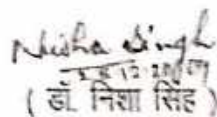 Nisha Singh
( डॉ. निशा सिंह )